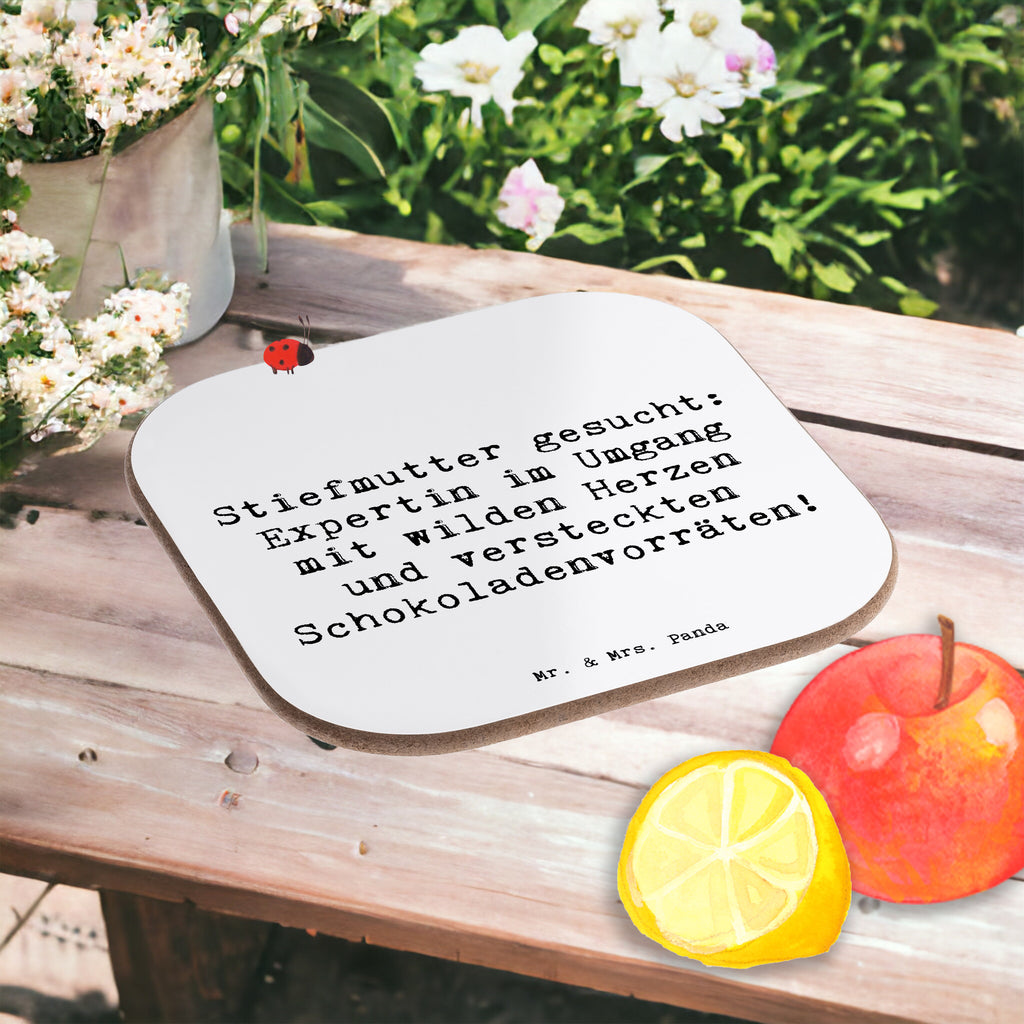 Stiefmutter gesucht:
Expertin im Umgang
mit wilden Herzen
und versteckten
Schokoladenvorräten!
Mr. & Mrs. Panda